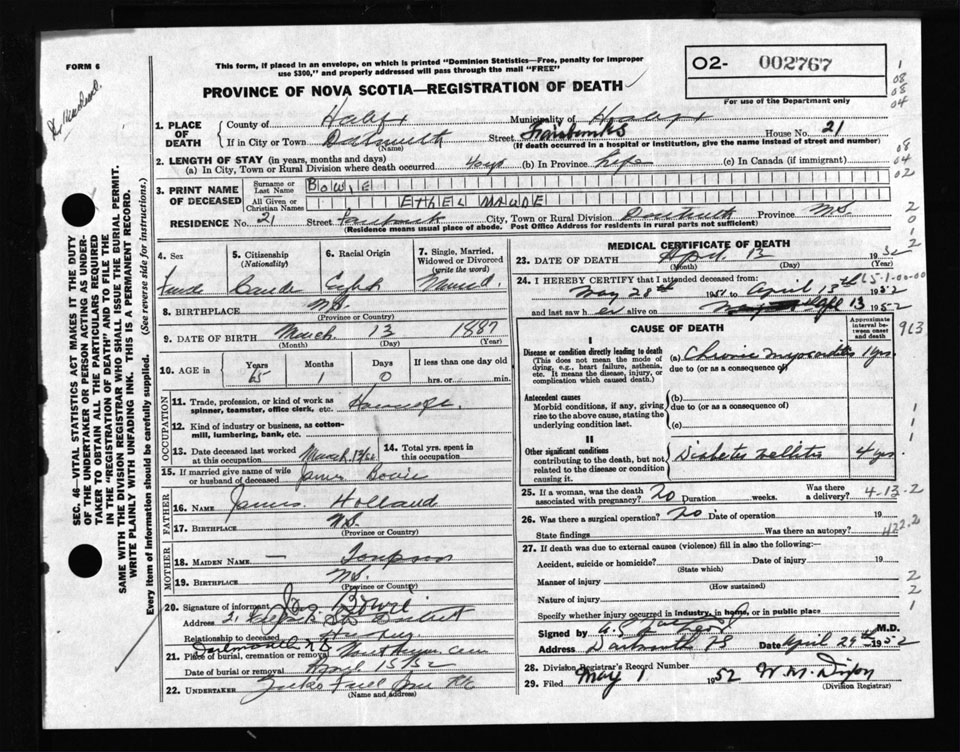 FORM 6
This form, if placed in an envelope, on which is printed "Dominion Statistics—Free, penalty for improper
use $300," and properly addressed will pass through the mail "FREE"
O2- 002767
For use of the Department only
PROVINCE OF NOVA SCOTIA—REGISTRATION OF DEATH
1. PLACE OF DEATH
County of Halifax Municipality of Halifax
If in City or Town Dartmouth Street Fairbanks House No. 21
(Name) (If death occurred in a hospital or institution, give the name instead of street and number)
2. LENGTH OF STAY (in years, months and days)
(a) In City, Town or Rural Division where death occurred 40 yrs (b) In Province life (c) In Canada (if immigrant)
3. PRINT NAME OF DECEASED
Surname or Last Name BOWIE
All Given or Christian Names ETHEL MAUDE
RESIDENCE No. 21 Street Fairbank City, Town or Rural Division Dartmouth Province N.S.
(Residence means usual place of abode. Post Office Address for residents in rural parts not sufficient)
4. Sex
5. Citizenship (Nationality)
6. Racial Origin
7. Single, Married, Widowed or Divorced (write the word)
Female
8. BIRTHPLACE N.S.
(Province or Country)
9. DATE OF BIRTH March 13 1887
(Month) (Day) (Year)
10. AGE in Years 65 Months 1 Days 0 If less than one day old hrs. or min.
OCCUPATION
11. Trade, profession, or kind of work as
spinner, teamster, office clerk, etc.
12. Kind of industry or business, as cotton-
mill, lumbering, bank, etc.
13. Date deceased last worked at this occupation March 13/52
14. Total yrs. spent in this occupation
15. If married give name of wife
or husband of deceased James Bowie
FATHER
16. NAME James Holland
17. BIRTHPLACE N.S.
(Province or Country)
MOTHER
18. MAIDEN NAME —
19. BIRTHPLACE N.S.
(Province or Country)
20. Signature of informant Jas Bowie
Address 21
Relationship to deceased Husband
21. Place of burial, cremation or removal
Date of burial or removal April 15 52
22. UNDERTAKER
(Name and address)
MEDICAL CERTIFICATE OF DEATH
23. DATE OF DEATH April 13 1952
(Month) (Day) (Year)
24. I HEREBY CERTIFY that I attended deceased from:
May 28th 1951 to April 13th 1952
and last saw her alive on Apl 13 1952
CAUSE OF DEATH
Approximate interval between onset and death
I
Disease or condition directly leading to death
(This does not mean the mode of
dying, e.g., heart failure, asthenia,
etc. It means the disease, injury, or
complication which caused death.)
(a) Chronic myocarditis 1 yrs
due to (or as a consequence of)
Antecedent causes
Morbid conditions, if any, giving
rise to the above cause, stating the
underlying condition last.
(b)
due to (or as a consequence of)
(c)
II
Other significant conditions
contributing to the death, but not
related to the disease or condition
causing it.
Diabetes Mellitus 4 yrs.
25. If a woman, was the death
associated with pregnancy? No Duration weeks. Was there a delivery?
4-13-2
26. Was there a surgical operation? No Date of operation 19
State findings Was there an autopsy?
422.2
27. If death was due to external causes (violence) fill in also the following:—
Accident, suicide or homicide? Date of injury 19
(State which)
Manner of injury
(How sustained)
Nature of injury
Specify whether injury occurred in industry, in home, or in public place
Signed by M.D.
Address Dartmouth NS Date April 29th 1952
28. Division Registrar's Record Number
29. Filed May 1 1952 W. M. Dixon
(Division Registrar)
SEC. 46—VITAL STATISTICS ACT MAKES IT THE DUTY
OF THE UNDERTAKER OR PERSON ACTING AS UNDER-
TAKER TO OBTAIN ALL THE PARTICULARS REQUIRED
IN THE "REGISTRATION OF DEATH" AND TO FILE THE
SAME WITH THE DIVISION REGISTRAR WHO SHALL ISSUE THE BURIAL PERMIT.
WRITE PLAINLY WITH UNFADING INK. THIS IS A PERMANENT RECORD.
Every item of information should be carefully supplied. (See reverse side for instructions.)